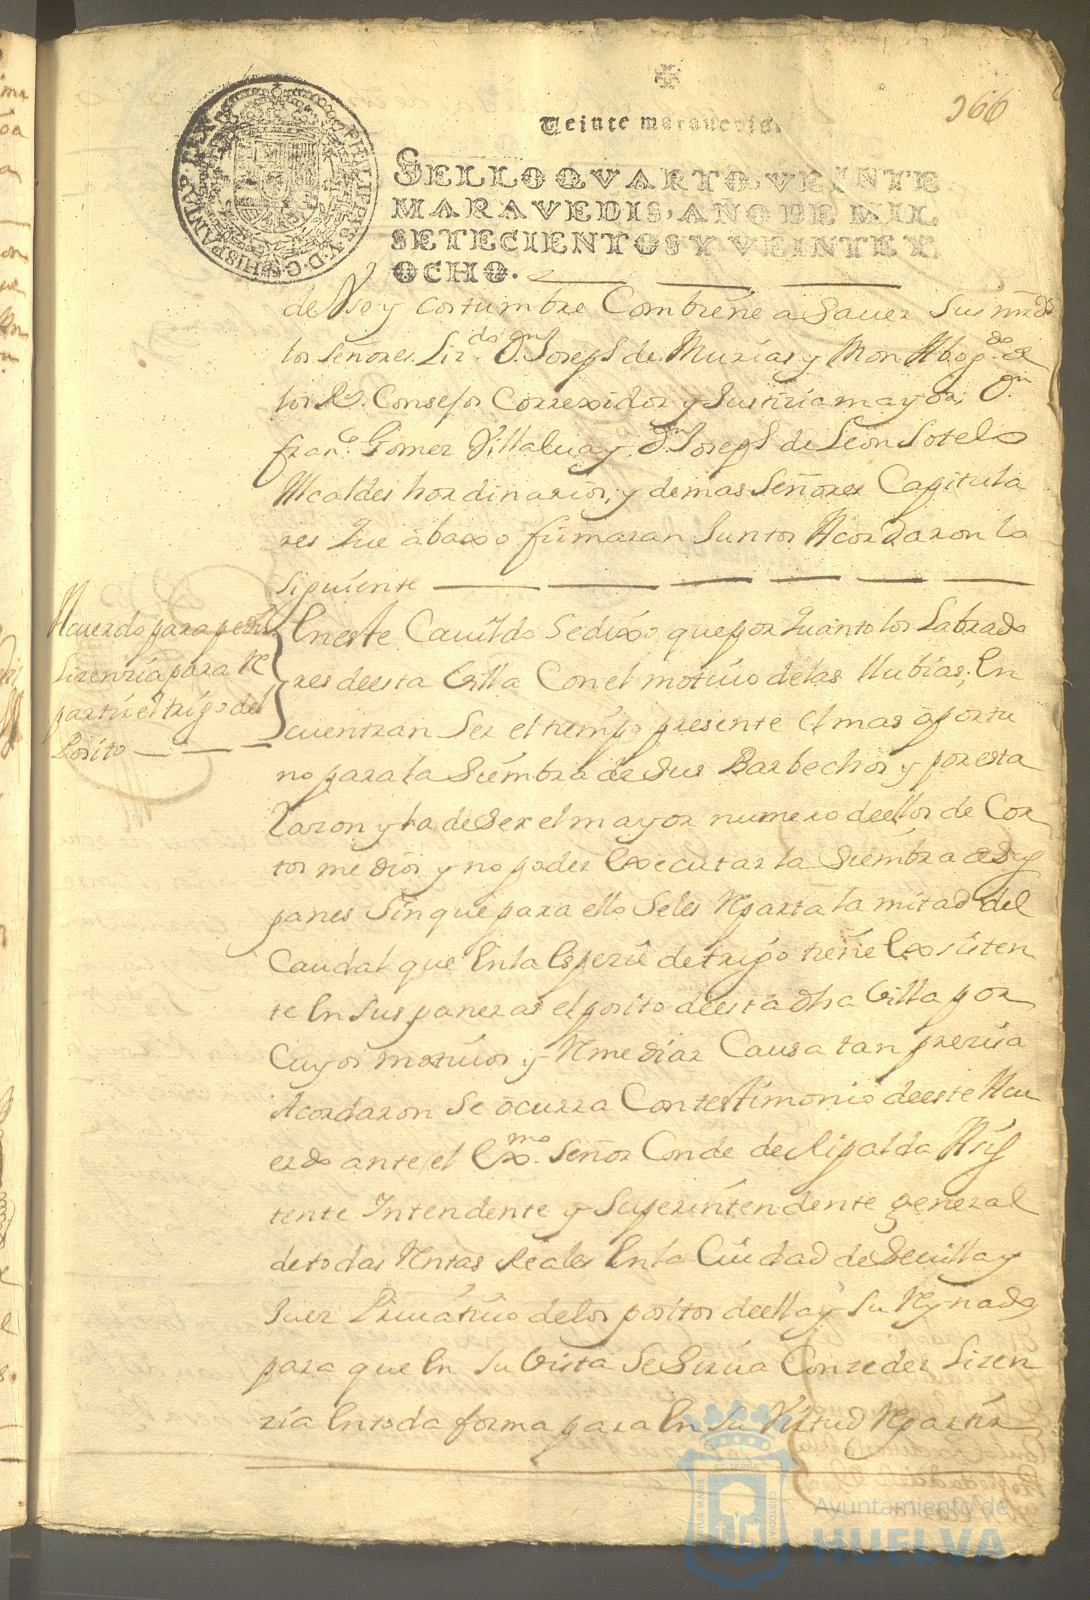 366
Veinte maravedis.
SELLO QVARTO, VEINTE
MARAVEDIS, AÑO DE MIL
SETECIENTOS Y VEINTE Y
OCHO.
PHILIPPUS V D G HISPANIAR REX
de Vso y costumbre Combiene a Sauer Sus mrds
los Señores Lizdo Dn Joseph de Murias y Mon Abogdo de
los Rs. Consejos Correxidor y Justizia mayor, Dn
Franco Gomez Villalua y Dn Joseph de Leon Sotelo
Alcaldes hordinarios, y demas Señores Capitula
res Que abaxo firmaran Juntos Acordaron lo
siguiente
Acuerdo para pedir
Lizenzia para Re
partir el trigo del
Posito
En este Cauildo Se dixo, que por Quanto los Labrado
res de esta Villa Con el motiuo de las llubias, En
cuentran Ser el tiempo presente el mas oportu
no para la Siembra de Sus Barbechos y por esta
Razon y ha de Ser el mayor numero de ellos de Cor
tos medios y no poder Executar la Siembra de Sus
panes Sin que para ello Se les Reparta la mitad del
Caudal que En la Espezie de trigo tiene Existen
te En Sus paneras el posito de esta dha Villa por
Cuyos motiuos y Remediar Causa tan preziza
Acordaron Se ocurra Con testimonio de este Acu
erdo ante el Exmo. Señor Conde de Ripalda Asis
tente Intendente y Superintendente general
de todas Rentas Reales En la Ciudad de Seuilla y
Juez Priuatiuo de los positos de ella y Su Reynado
para que En Su Vista Se Sirua Conzeder Lizen
zia En toda forma para En Su Virtud Repartir
Ayuntamiento de
HUELVA